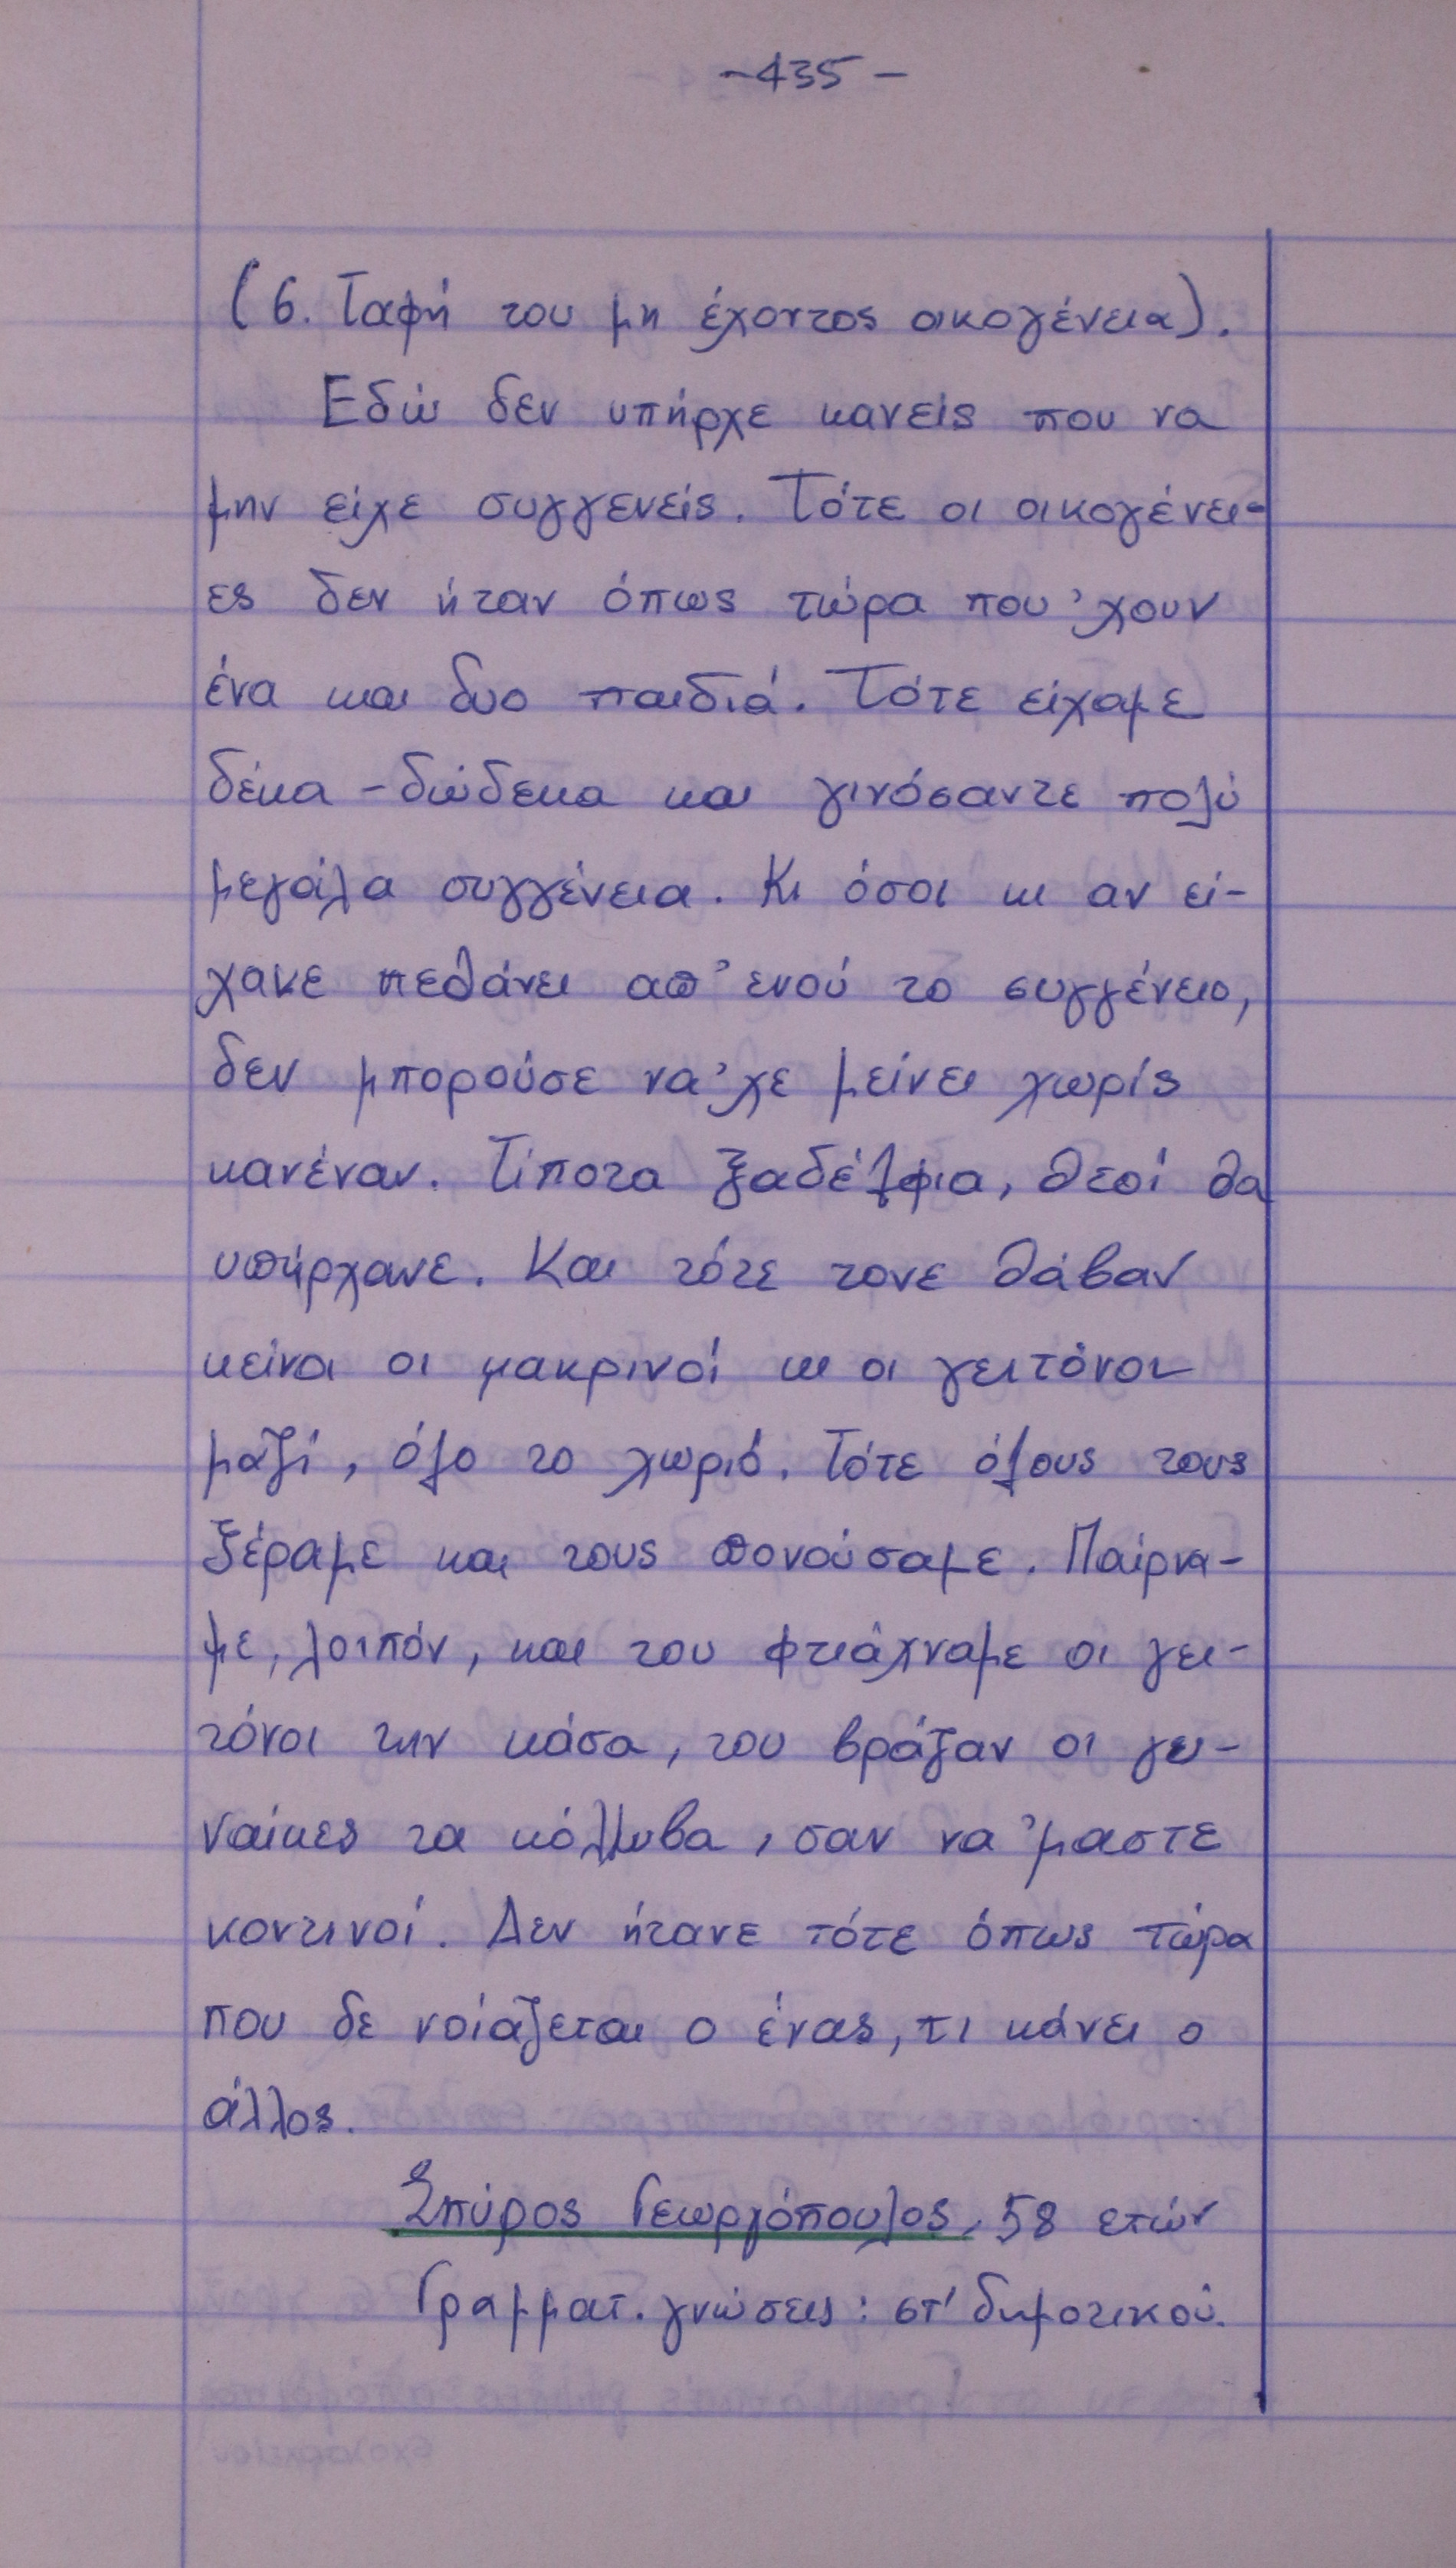 -435-
(6. Ταφή του μη έχοντος οικογένεια).
Εδώ δεν υπήρχε κανείς που να
μην είχε συγγενείς. Τότε οι οικογένει-
ες δεν ήταν όπως τώρα που 'χουν
ένα και δυο παιδιά. Τότε είχαμε
δέκα-δώδεκα και γινόσαντε πολύ
μεγάλα συγγένεια. Κι όσοι κι αν εί-
χανε πεθάνει απ' ενού το συγγένειο,
δεν μπορούσε να 'χε μείνει χωρίς
κανέναν. Τίποτα ξαδέλφια, θειοί θα
υπήρχανε. Και τότε τονε θάβαν
κείνοι οι μακρινοί κι οι γειτόνοι
μαζί, όλο το χωριό. Τότε όλους τους
ξέραμε και τους πονούσαμε. Παίρνα-
με, λοιπόν, και του φτιάχναμε οι γει-
τόνοι την κάσα, του βράζαν οι γυ-
ναίκες τα κόλλυβα, σαν να 'μαστε
κοντινοί. Δεν ήτανε τότε όπως τώρα
που δε νοιάζεται ο ένας, τι κάνει ο
άλλος.
Σπύρος Γεωργόπουλος, 58 ετών
Γραμματ. γνώσεις: στ' δημοτικού.